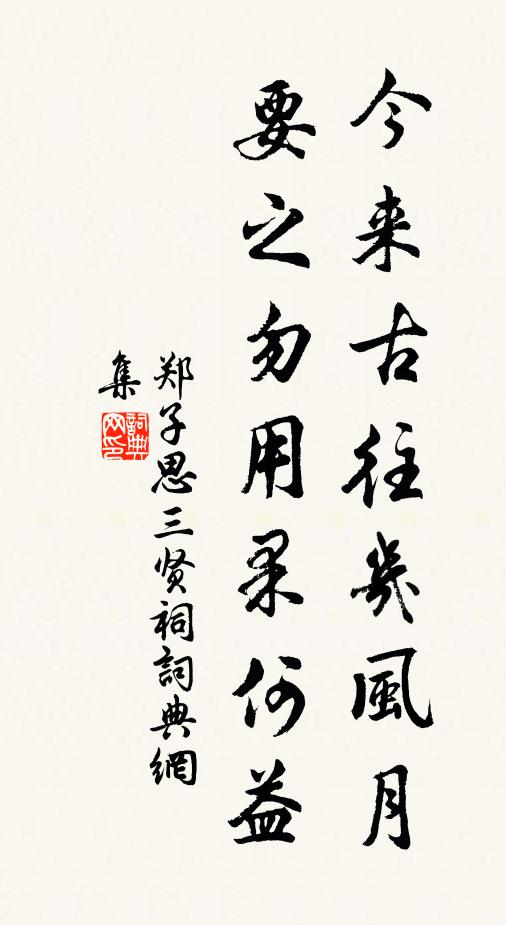 今来古往幾風月
要之勿用果何益
郑子思三贤祠詞典網
集
詞典网印